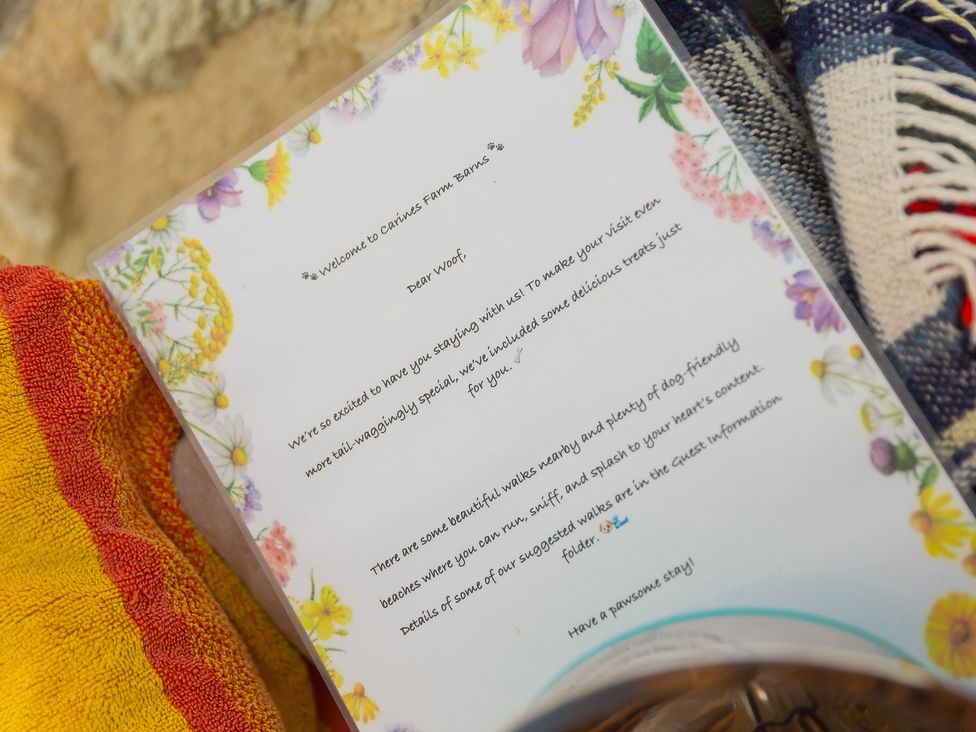 🐾Welcome to Carines Farm Barns🐾
Dear Woof,
We're so excited to have you staying with us! To make your visit even
more tail-waggingly special, we've included some delicious treats just
for you. 🦴
There are some beautiful walks nearby and plenty of dog-friendly
beaches where you can run, sniff, and splash to your heart's content.
Details of some of our suggested walks are in the Guest Information
folder. 🐶🌊
Have a pawsome stay!